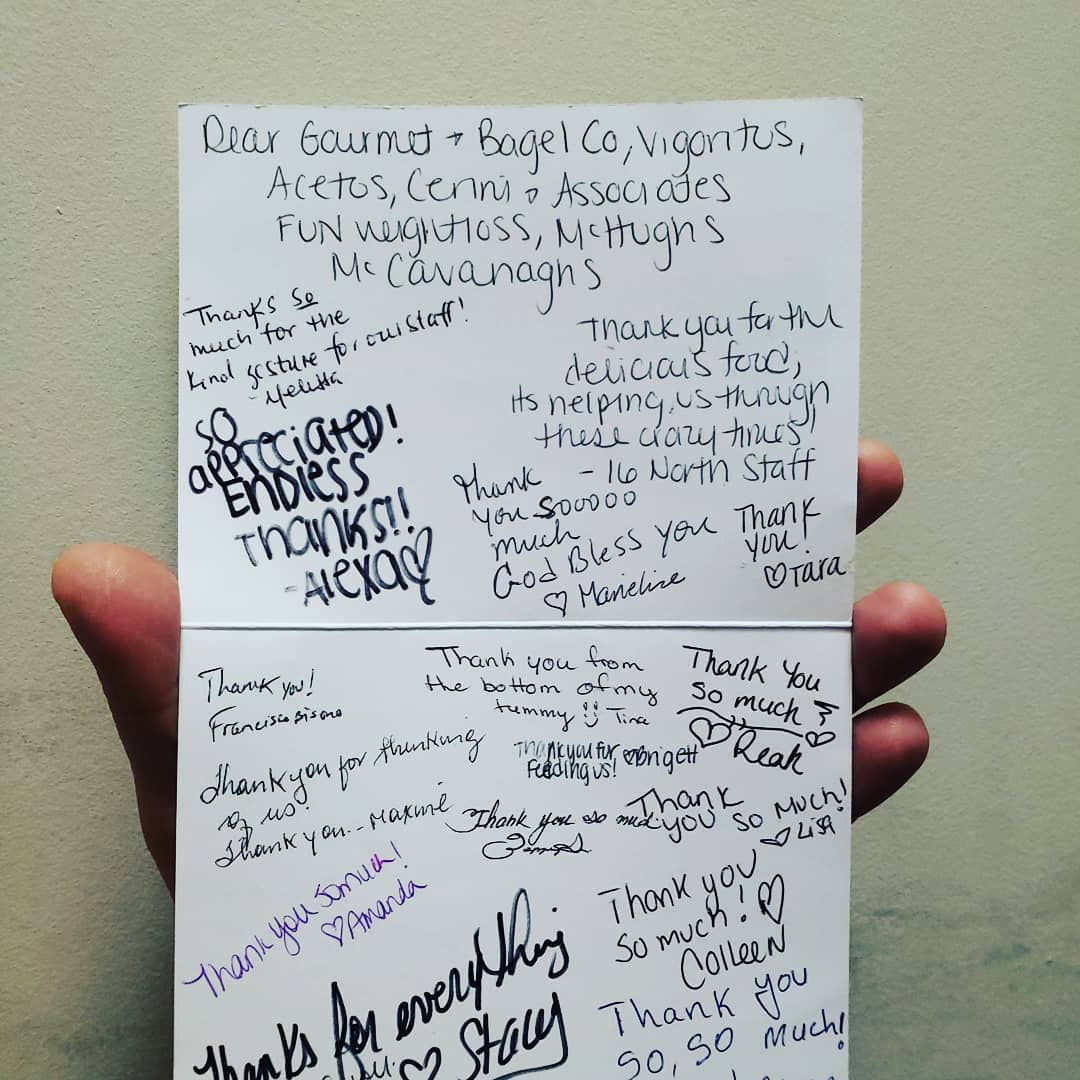 Dear Gourmet + Bagel Co, Vigoritus,
Acetos, Cerini & Associates
FUN weightloss, McHughs
McCavanaghs
Thanks so
much for the
kind gesture for our staff!
- Melissa
Thank you for the
delicious food,
its helping us through
these crazy times!
- 16 North Staff
SO
appreciated!
ENDLESS
THANKS!!
- Alexa
Thank
you sooooo
much
God Bless you
Marieline
Thank
you!
Tara
Thank you!
Francisco
Thank you from
the bottom of my
tummy Tina
Thank You
so much
Leah
Thank you for thinking
of us!
Thank you.. Maxine
Thank you for
feeding us! Brigett
Thank you so much
Thank
you so much!
Lisa
Thank you so much!
Amanda
Thank you
so much!
Colleen
Thanks for everything
Stacy
Thank you
so, so much!